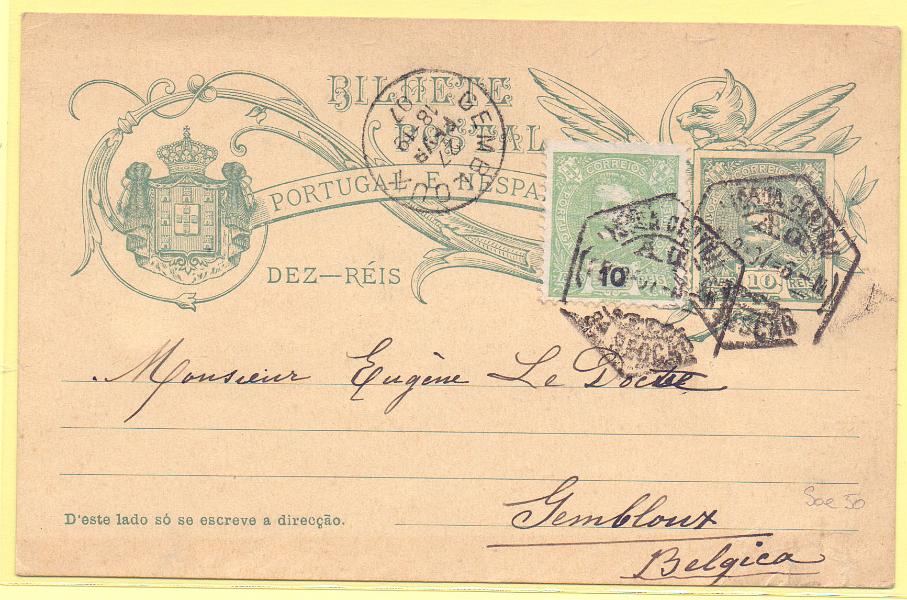 BILHETE
POSTAL
PORTUGAL E HESPA
DEZ—RÉIS
GEMBLOUX
CORREIOS
10
10 RÉIS
SECÇÃO
SECÇÃO
Monsieur Eugène Le Docte
D'este lado só se escreve a direcção.
Gembloux
Belgica